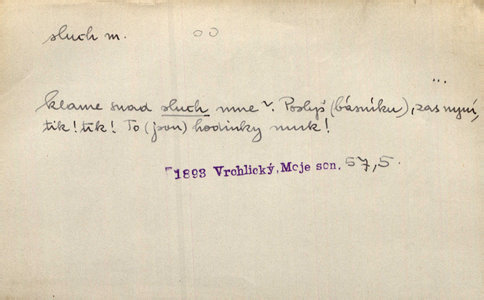 sluch m.
klame snad sluch mne?. Poslyš (básníku), zas nyní,
tik! tik! To (jsou) hodinky muk!
1893 Vrchlický, Moje son. 57,5.